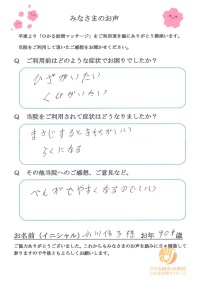 みなさまのお声
平素より「ひかる訪問マッサージ」をご利用頂き誠にありがとう御座います。
当院をご利用して頂いたご感想をお聞かせください。
Q ご利用前はどのような症状でお困りでしたか?
ひざがいたい
くせがいたい
Q 当院をご利用されて症状はどうなりましたか?
まさじするときもちがいい
らくになる
Q その他当院へのご感想、ご意見など。
べんがでやすくなるのでいい
お名前(イニシャル) 様 お年 90才 歳
ご協力ありがとうございました。これからもみなさまのお声を励みに日々精進して
参りますので今後ともよろしくお願いします。